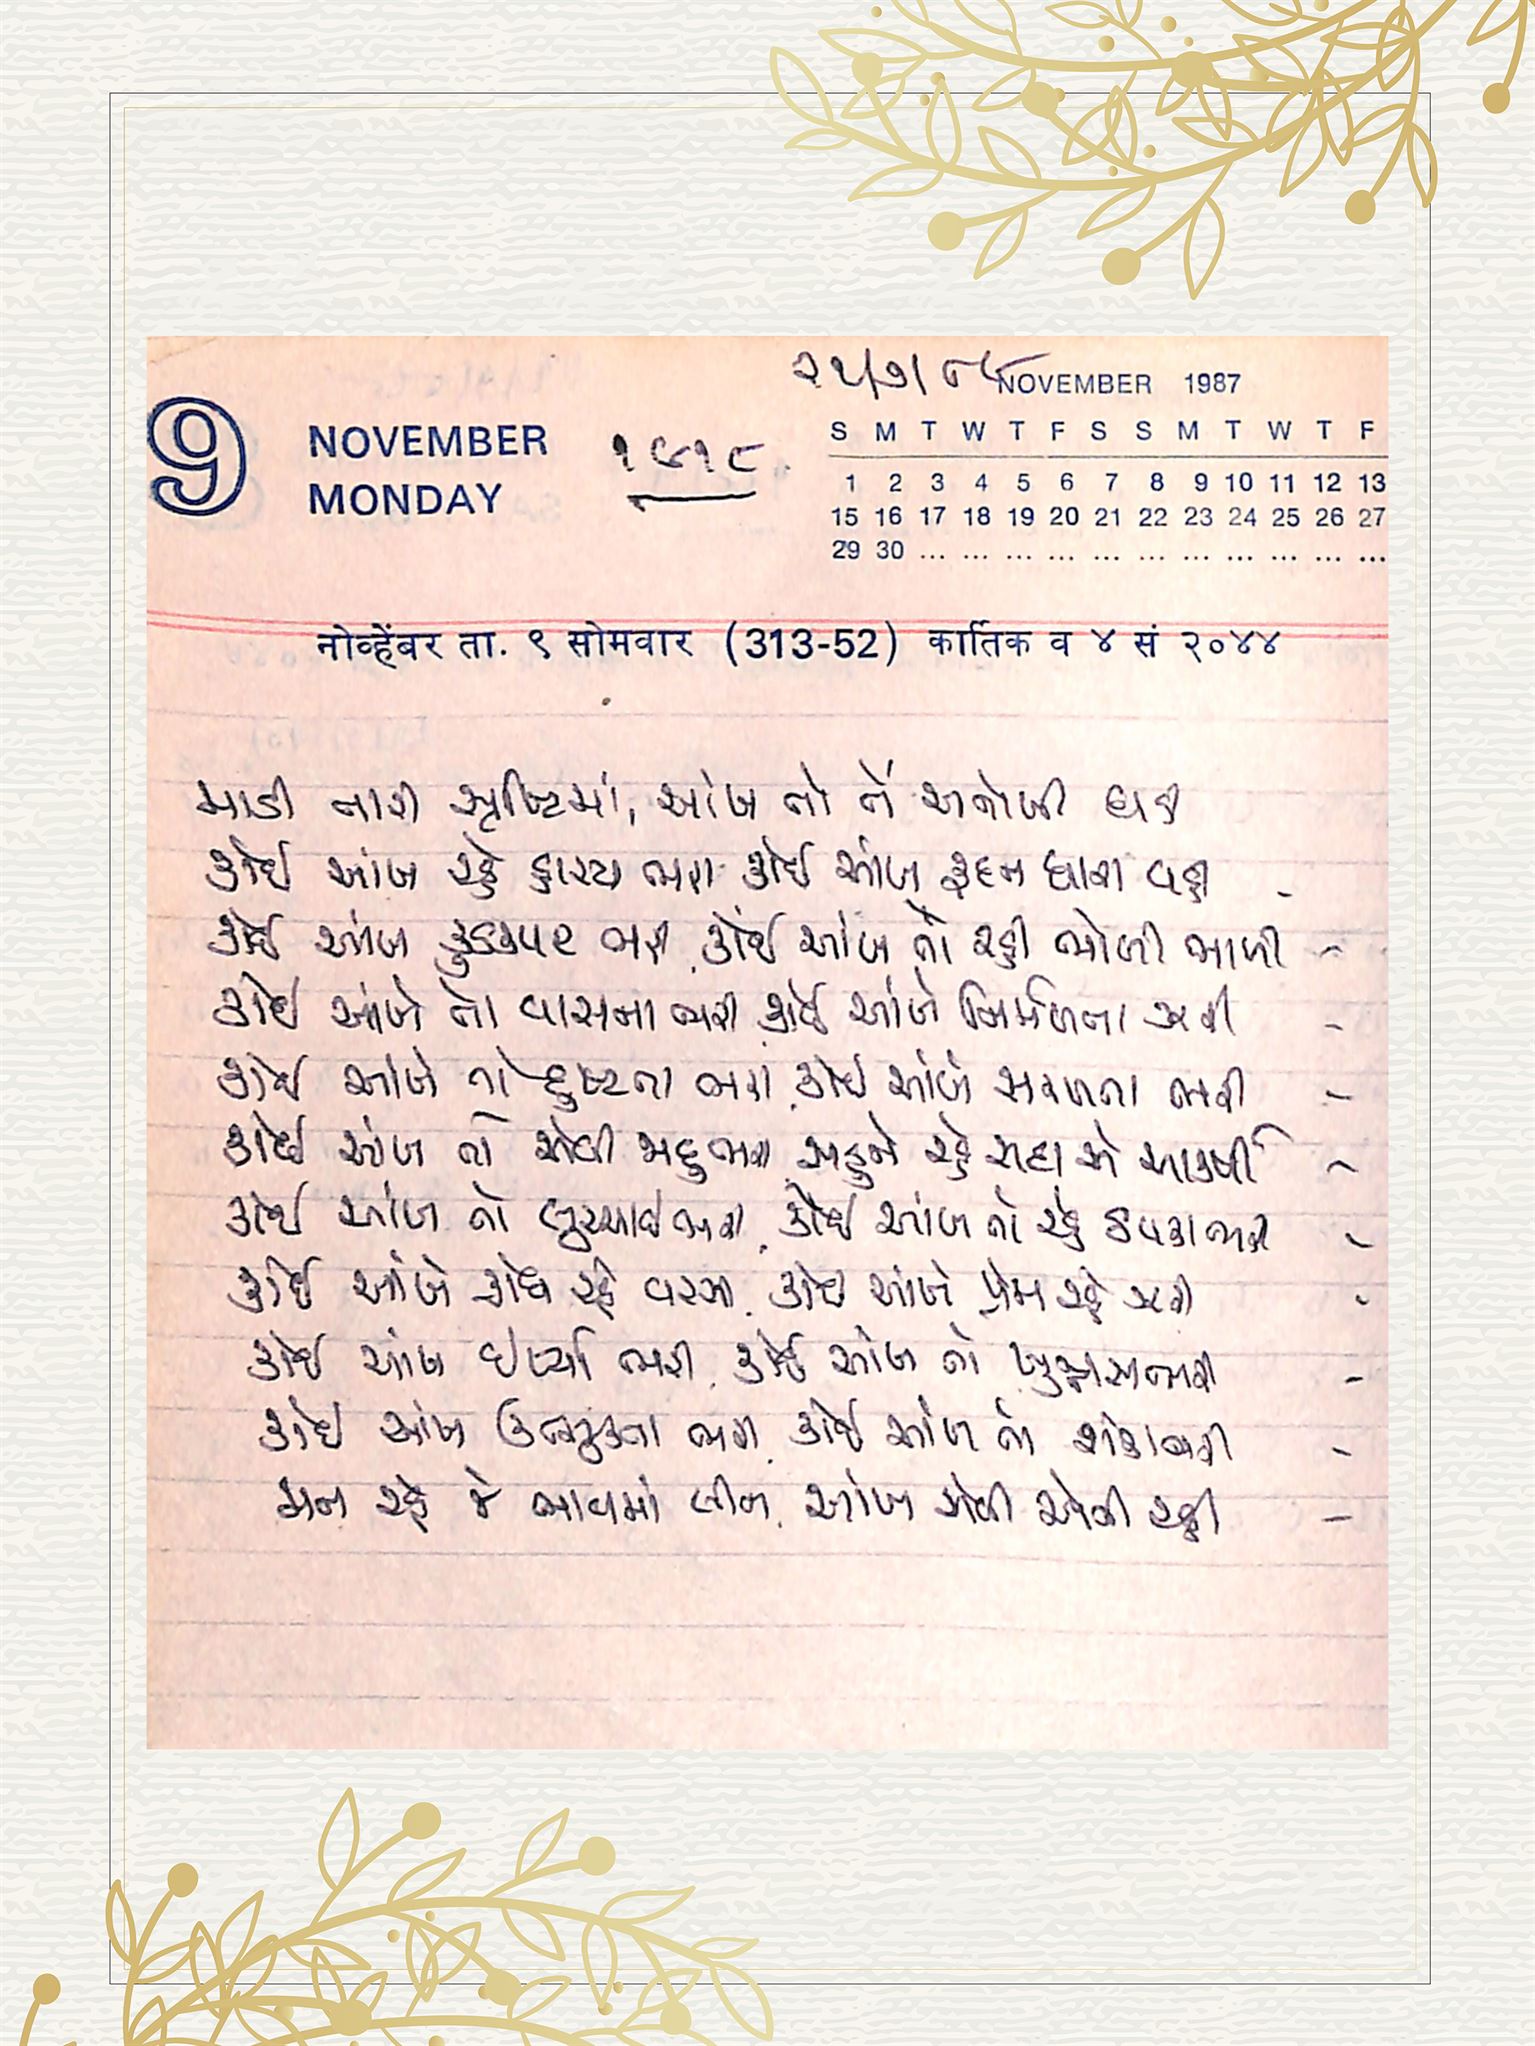 ૨૫/૭/૮૯
NOVEMBER 1987
9
NOVEMBER
MONDAY
૧૯૧૮
S M T W T F S S M T W T F
1 2 3 4 5 6 7 8 9 10 11 12 13
15 16 17 18 19 20 21 22 23 24 25 26 27
29 30 ... ... ... ... ... ... ... ... ... ... ...
नोव्हेंबर ता. ९ सोमवार (313-52) कार्तिक व ४ सं २०४४
માડી તારી સૃષ્ટિમાં, આંખ તો તેં અનોખી ઘડી
કોઈ આંખ રહે હાસ્ય ભરી કોઈ આંખ રૂદન ધારા વહી -
કોઈ આંખ કુડકપટ ભરી, કોઈ આંખ તો રહી ભોળી ભાળી -
કોઈ આંખે તો વાસના ભરી, કોઈ આંખે નિર્મળતા ઝરી -
કોઈ આંખે તો દુષ્ટતા ભરી, કોઈ આંખે સરળતા ભરી -
કોઈ આંખ તો એવી મદભરી, સહુને રહે સદા એ આકર્ષી -
કોઈ આંખ તો લુચ્ચાઈભરી, કોઈ આંખ તો રહે ઠપકાભરી -
કોઈ આંખે ક્રોધ રહે વરસી, કોઈ આંખે પ્રેમ રહે ઝરી -
કોઈ આંખ ઈર્ષ્યા ભરી, કોઈ આંખ તો ખુન્નસભરી -
કોઈ આંખ ઉત્સુકતા ભરી, કોઈ આંખ તો શંકાભરી -
મન રહે જે ભાવમાં લીન, આંખ એવી એવી રહી -